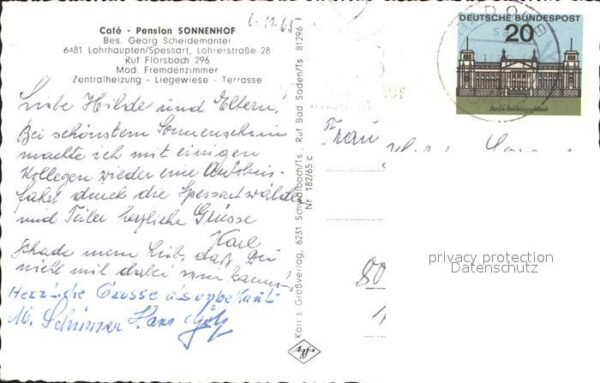 Café - Pension SONNENHOF
Bes. Georg Scheidemantel
6481 Lohrhaupten/Spessart, Lohrerstraße 28
Ruf Flörsbach 296
Mod. Fremdenzimmer
Zentralheizung - Liegewiese - Terrasse
6.11.65
Liebe Hilde und Eltern!
Bei schönstem Sonnenschein
machte ich mit einigen
Kollegen wieder eine Autobus-
fahrt durch die Spessartwälder
und Teile herzliche Grüsse
Karl
Schade mein Lieb, daß Du
nicht mit dabei sein kannst.
Herzliche Grüsse als unbekannt
M. Schürmer Hans Götz
Karl's Großverlag, 6231 Schwalbach/Ts. Ruf Bad Soden/Ts 81296
Nr 182/65 c
Agfa
DEUTSCHE BUNDESPOST
20
Frau
privacy protection
Datenschutz